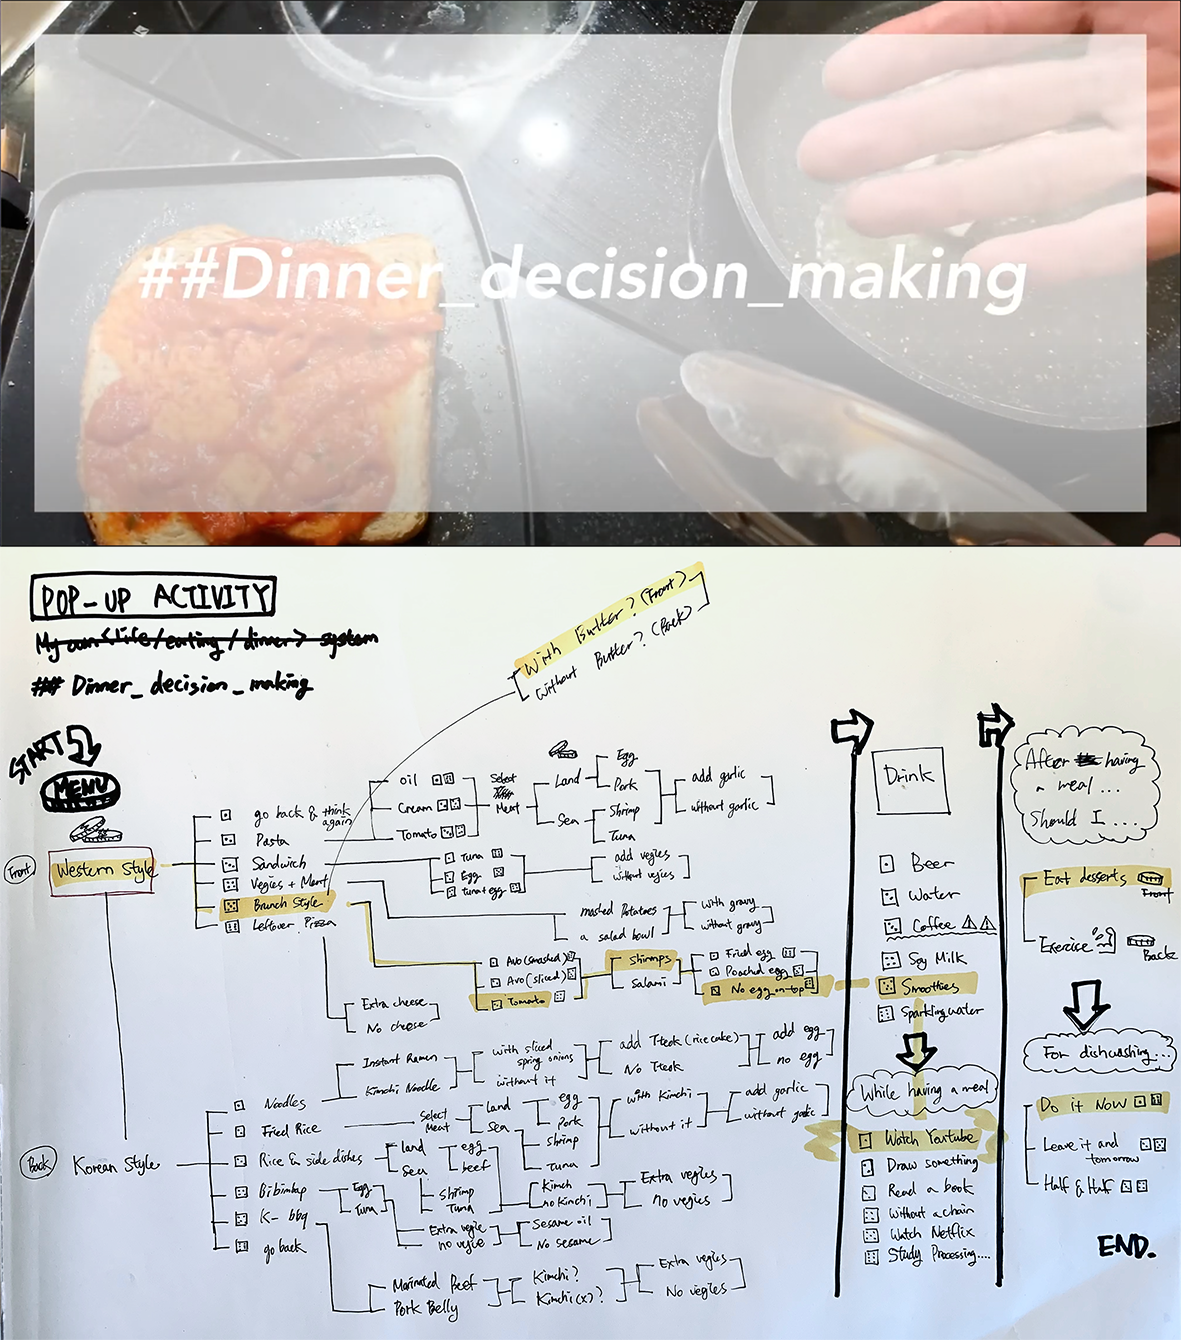 ##Dinner_decision_making
POP-UP ACTIVITY
My own <life/eating/dinner> system
## Dinner_decision_making
With Butter? (Front)
Without Butter? (Back)
START
MENU
Front
Western Style
go back & think again
Pasta
Sandwich
Vegies + Meat
Brunch Style
Leftover Pizza
Oil
Cream
Tomato
Select
Meat
Land
Sea
Egg
Pork
Shrimp
Tuna
add garlic
without garlic
Tuna
Egg
tuna+egg
add vegies
without vegies
mashed Potatoes
a salad bowl
with gravy
without gravy
Avo (smashed)
Avo (sliced)
Tomato
Shrimps
Salami
Fried egg
Poached egg
No egg on top
Extra cheese
No cheese
Back
Korean Style
Noodles
Fried Rice
Rice & side dishes
Bibimbap
K-bbq
go back
Instant Ramen
Kimchi Noodle
with sliced
spring onions
without it
add Tteok (rice cake)
No Tteok
add egg
no egg
Select
Meat
Land
Sea
egg
Pork
shrimp
Tuna
with Kimchi
without it
add garlic
without garlic
land
Sea
egg
beef
shrimp
Tuna
Kimch
no Kimchi
Extra vegies
no vegies
Egg
Tuna
Extra vegie
no vegie
Sesame oil
No sesame
Marinated Beef
Pork Belly
Kimchi?
Kimchi(x)?
Extra vegies
No vegies
Drink
Beer
Water
Coffee
Soy Milk
Smoothies
Sparkling water
While having a meal
Watch Youtube
Draw something
Read a book
Without a chair
Watch Netflix
Study Processing....
After having
a meal...
Should I...
Eat desserts
Front
Exercise
Back
For dishwashing...
Do it Now
Leave it and
tomorrow
Half & Half
END.